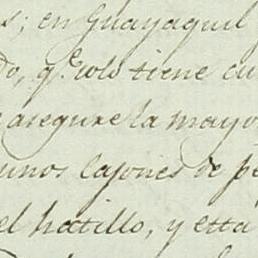 s; en Guayaquil
do, q.e solo tiene cu
asegure la mayo
unos cajones de pe
el hatillo, y esta